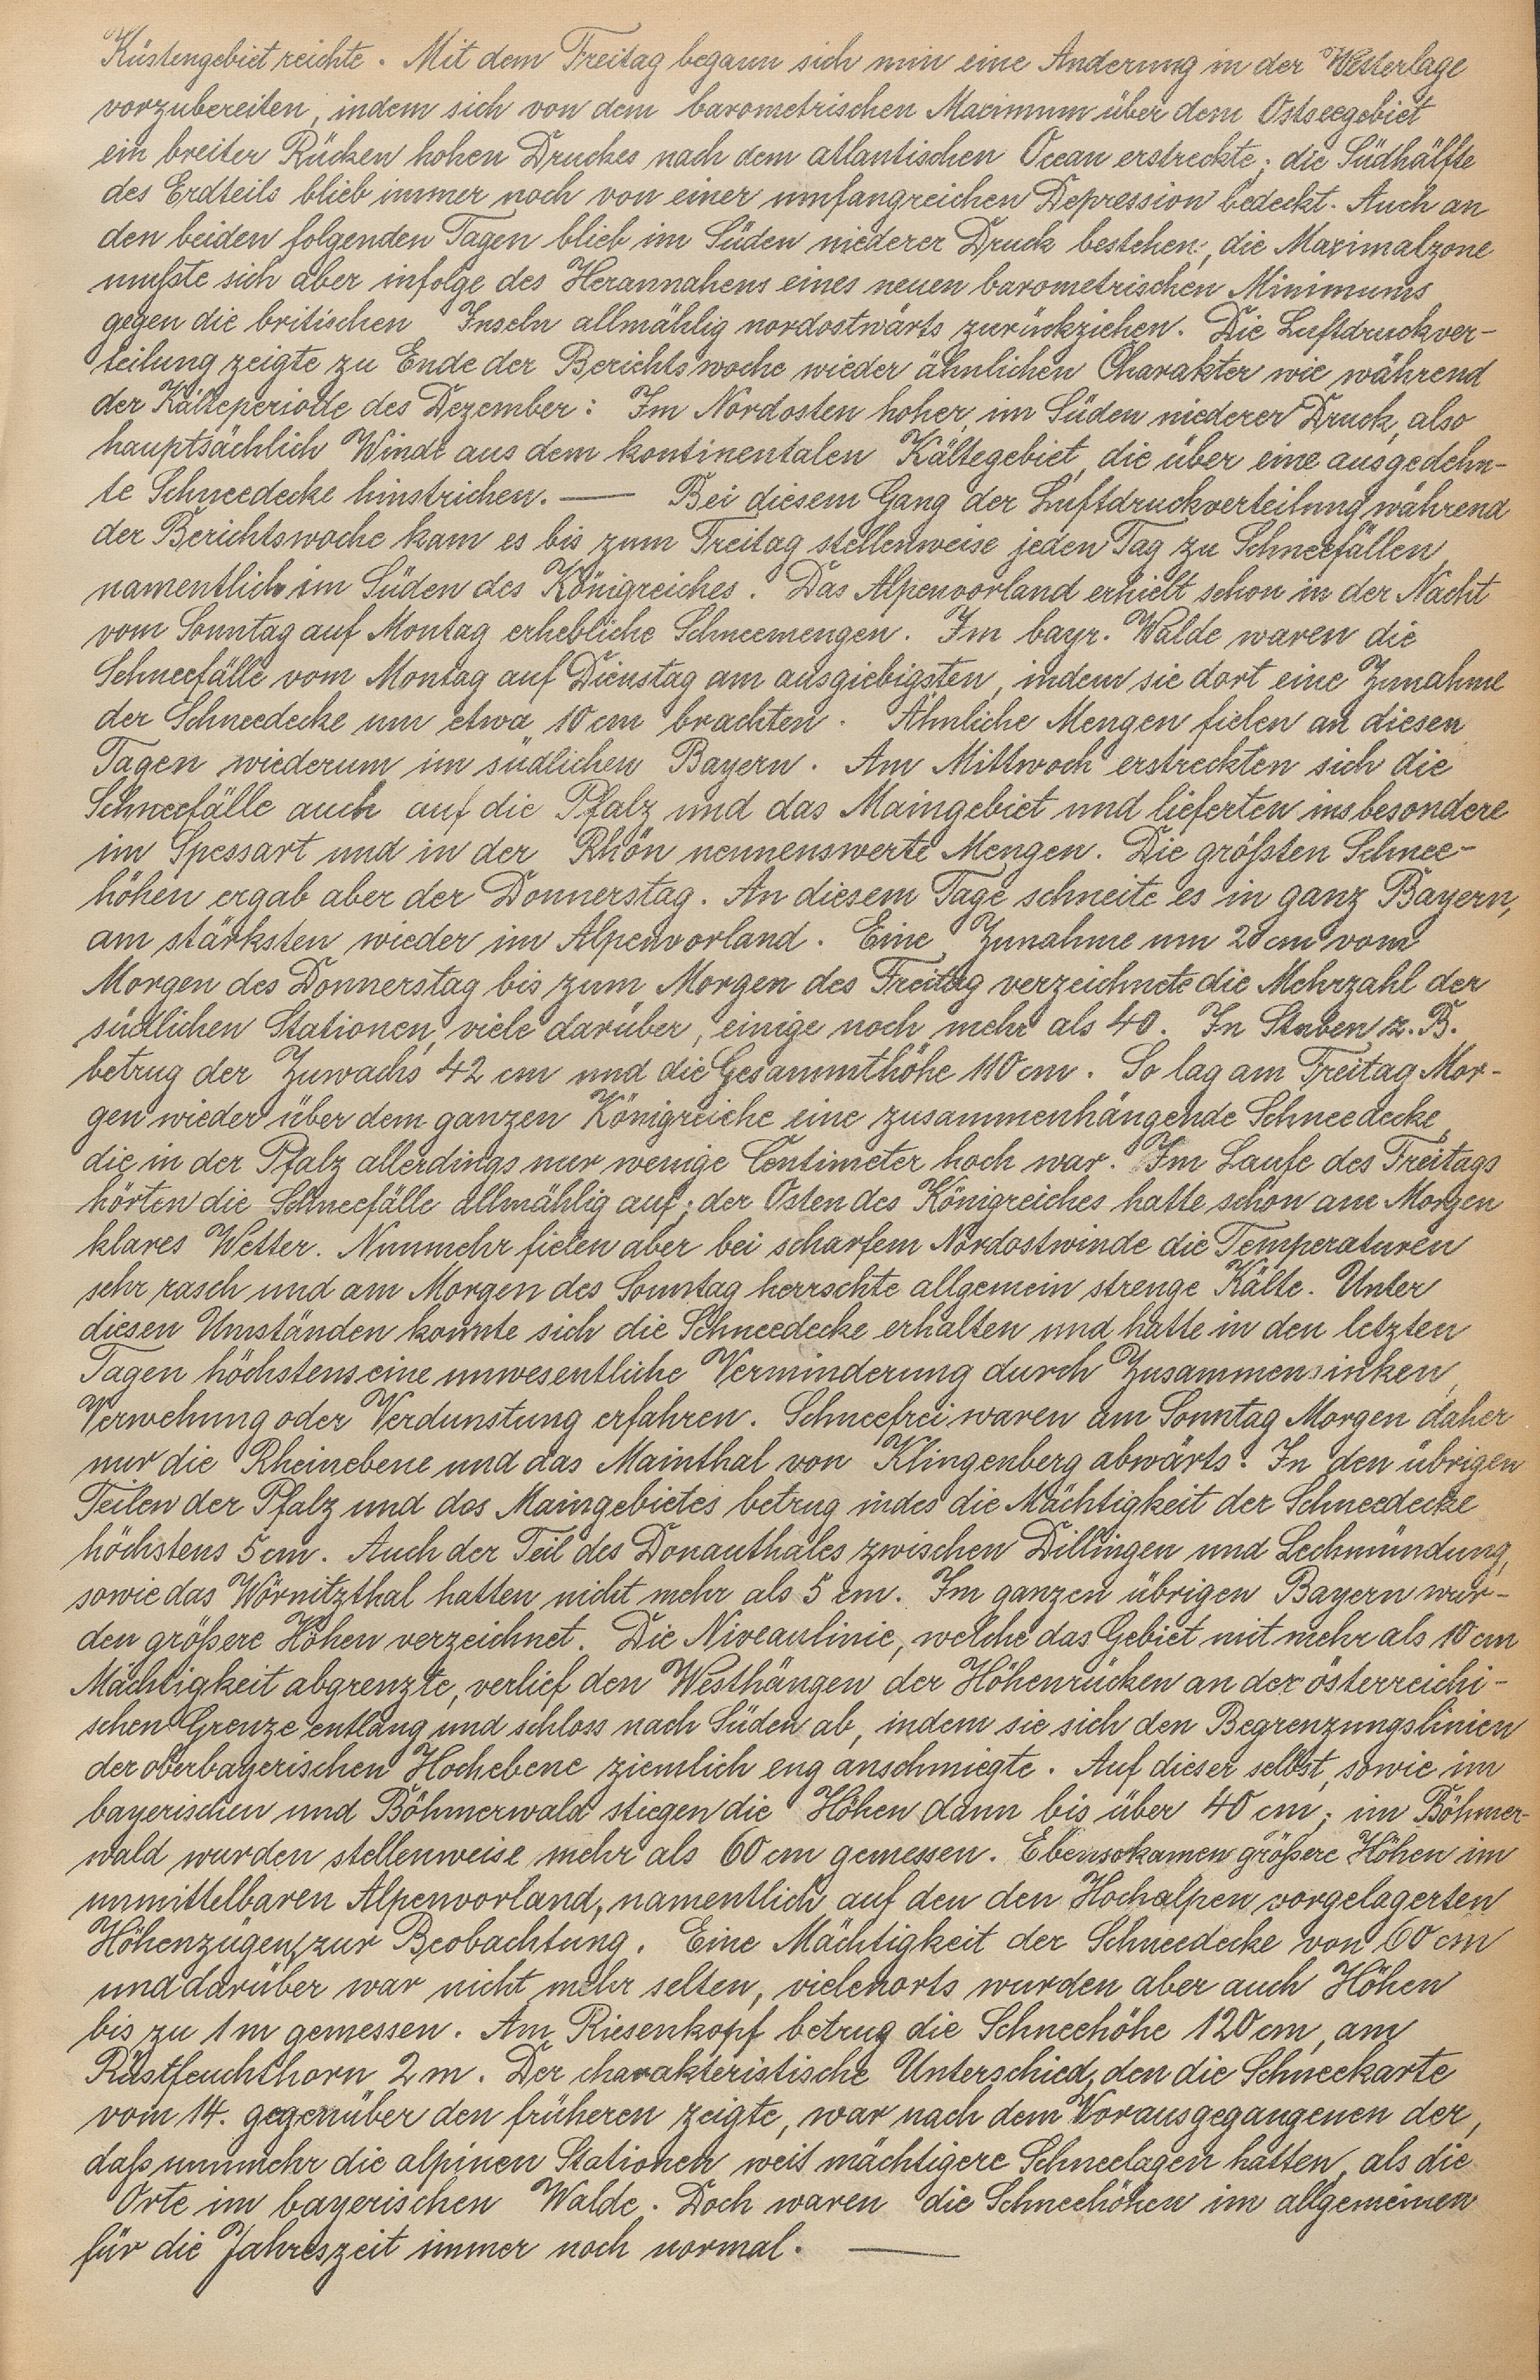 Küstengebiet reichte. Mit dem Freitag begann sich nun eine Änderung in der Wetterlage
vorzubereiten, indem sich von dem barometrischen Maximum über dem Ostseegebiet
ein breiter Rücken hohen Druckes nach dem atlantischen Ocean erstreckte; die Südhälfte
des Erdteils blieb immer noch von einer umfangreichen Depression bedeckt. Auch an
den beiden folgenden Tagen blieb im Süden niederer Druck bestehen, die Maximalzone
mußte sich aber infolge des Herannahens eines neuen barometrischen Minimums
gegen die britischen Inseln allmählig nordostwärts zurückziehen. Die Luftdruckver-
teilung zeigte zu Ende der Berichtswoche wieder ähnlichen Charakter wie während
der Kälteperiode des Dezember: Im Nordosten hoher, im Süden niederer Druck, also
hauptsächlich Winde aus dem kontinentalen Kältegebiet, die über eine ausgedehn-
te Schneedecke hinstrichen. — Bei diesem Gang der Luftdruckverteilung während
der Berichtswoche kam es bis zum Freitag stellenweise jeden Tag zu Schneefällen,
namentlich im Süden des Königreiches. Das Alpenvorland erhielt schon in der Nacht
vom Sonntag auf Montag erhebliche Schneemengen. Im bayr. Walde waren die
Schneefälle vom Montag auf Dienstag am ausgiebigsten, indem sie dort eine Zunahme
der Schneedecke um etwa 10 cm brachten. Ähnliche Mengen fielen an diesen
Tagen wiederum im südlichen Bayern. Am Mittwoch erstreckten sich die
Schneefälle auch auf die Pfalz und das Maingebiet und lieferten insbesondere
im Spessart und in der Rhön nennenswerte Mengen. Die größten Schnee-
höhen ergab aber der Donnerstag. An diesem Tage schneite es in ganz Bayern,
am stärksten wieder im Alpenvorland. Eine Zunahme um 20 cm vom
Morgen des Donnerstag bis zum Morgen des Freitag verzeichnete die Mehrzahl der
südlichen Stationen, viele darüber, einige noch mehr als 40. In Stuben z. B.
betrug der Zuwachs 42 cm und die Gesammthöhe 110 cm. So lag am Freitag Mor-
gen wieder über dem ganzen Königreiche eine zusammenhängende Schneedecke,
die in der Pfalz allerdings nur wenige Centimeter hoch war. Im Laufe des Freitags
hörten die Schneefälle allmählig auf; der Osten des Königreiches hatte schon am Morgen
klares Wetter. Nunmehr fielen aber bei scharfem Nordostwinde die Temperaturen
sehr rasch und am Morgen des Sonntag herrschte allgemein strenge Kälte. Unter
diesen Umständen konnte sich die Schneedecke erhalten und hatte in den letzten
Tagen höchstens eine unwesentliche Verminderung durch Zusammensinken,
Verwehung oder Verdunstung erfahren. Schneefrei waren am Sonntag Morgen daher
nur die Rheinebene und das Mainthal von Klingenberg abwärts. In den übrigen
Teilen der Pfalz und des Maingebietes betrug indes die Mächtigkeit der Schneedecke
höchstens 5 cm. Auch der Teil des Donauthales zwischen Dillingen und Lechmündung,
sowie das Wörnitzthal hatten nicht mehr als 5 cm. Im ganzen übrigen Bayern wur-
den größere Höhen verzeichnet. Die Niveaulinie, welche das Gebiet mit mehr als 10 cm
Mächtigkeit abgrenzte, verlief den Westhängen der Höhenrücken an der österreichi-
schen Grenze entlang und schloss nach Süden ab, indem sie sich den Begrenzungslinien
der oberbayerischen Hochebene ziemlich eng anschmiegte. Auf dieser selbst, sowie im
bayerischen und Böhmerwald stiegen die Höhen dann bis über 40 cm; im Böhmer-
wald wurden stellenweise mehr als 60 cm gemessen. Ebenso kamen größere Höhen im
unmittelbaren Alpenvorland, namentlich auf den den Hochalpen vorgelagerten
Höhenzügen, zur Beobachtung. Eine Mächtigkeit der Schneedecke von 60 cm
und darüber war nicht mehr selten, vielenorts wurden aber auch Höhen
bis zu 1 m gemessen. Am Riesenkopf betrug die Schneehöhe 120 cm, am
Ristfeuchthorn 2 m. Der charakteristische Unterschied, den die Schneekarte
vom 14. gegenüber den früheren zeigte, war nach dem Vorausgegangenen der,
daß nunmehr die alpinen Stationen weit mächtigere Schneelagen hatten, als die
Orte im bayerischen Walde. Doch waren die Schneehöhen im allgemeinen
für die Jahreszeit immer noch normal. —